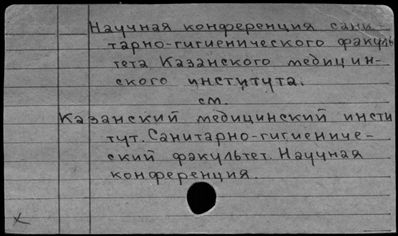 Научная конференция сани-
тарно-гигиенического факуль
тета Казанского медицин-
ского института.
см.
Казанский медицинский инсти
тут. Санитарно-гигиениче-
ский факультет. Научная
конференция.
x